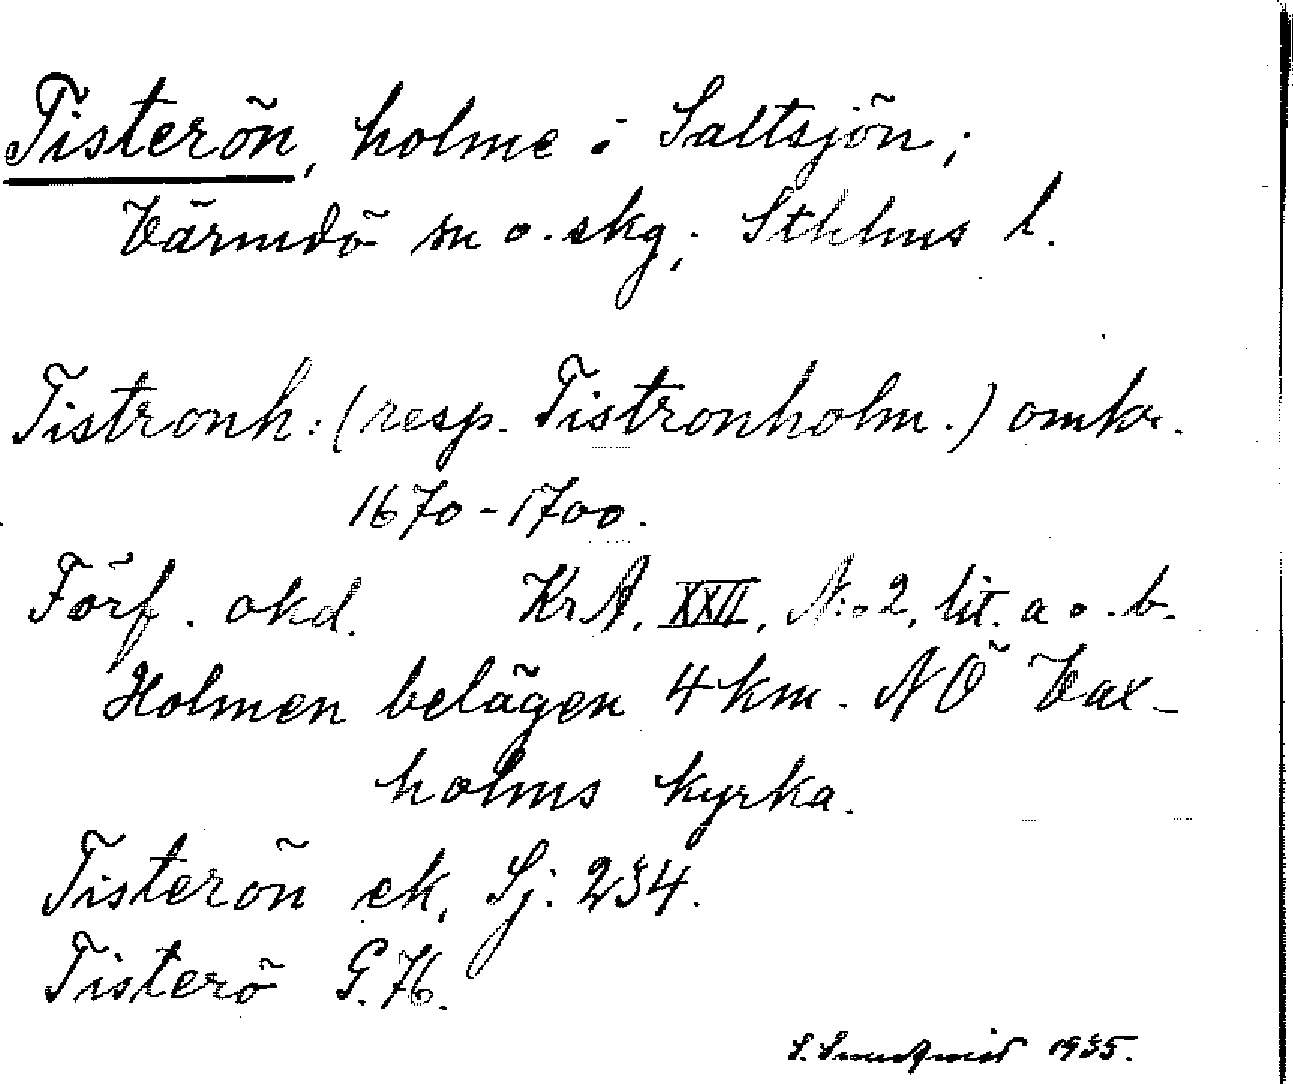 Tisterön, holme i Saltsjön;
Värmdö sn o. skg; Sthlms l.
Tistronh: (resp. Tistronholm.) omkr.
1670-1700.
Förf. okd. KrA. XXII, N:o 2, lit. a o. b.
Holmen belägen 4 km. NÖ Vax-
holms kyrka.
Tisterön ek, Sj. 234.
Tisterö G. 76.
S. 1935.